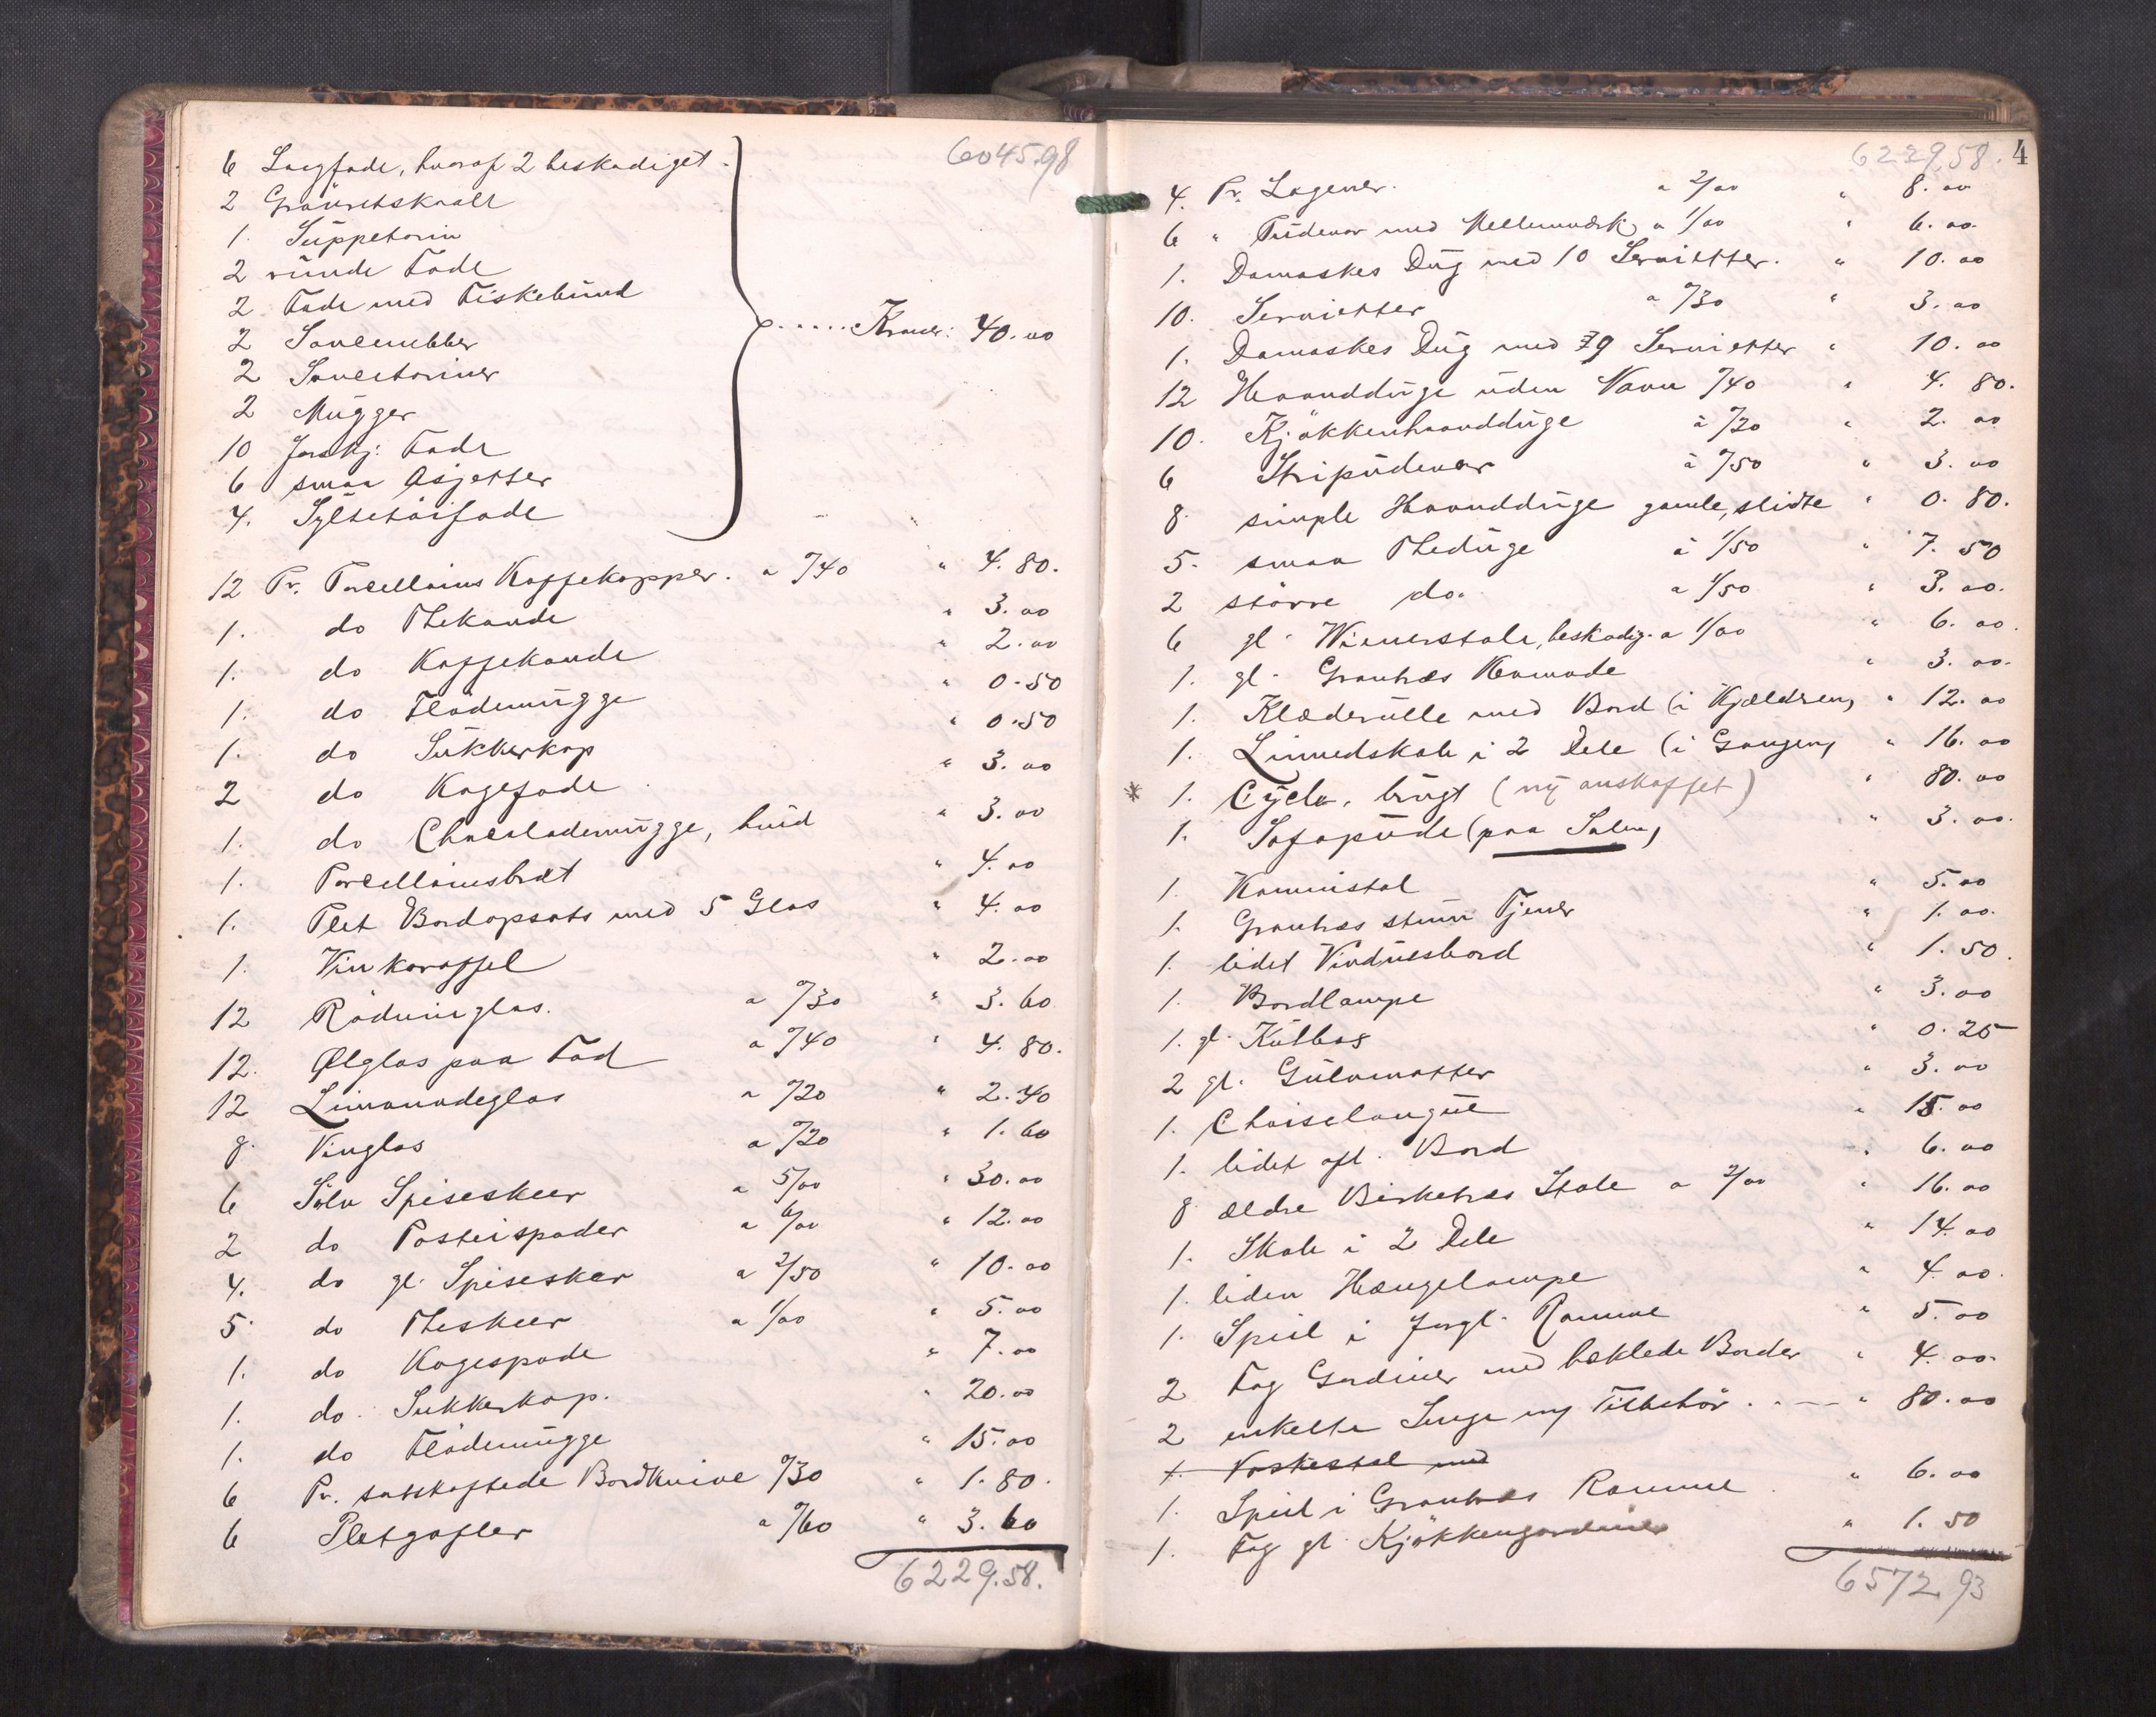 6045.98
6 Laagfade, hvoraf 2 beskadiget.
2 Grönsetskaale
1. Süppeterin
2 runde Fade
2 Fade med Fiskebund
2 Saucenebber
2 Sauceteriner
2 Mugger
10 forskj: Fade
6 smaa Asjetter
4. Syltetöifade
Kroner: 40.00
12 Pr. Porcellains Kaffekopper. a 0/40 " 4.80.
1. do Thekande " 3.00
1. do Kaffekande " 2.00
1. do Flödemugge " 0.50
1. do Sukkerkop " 0.50
2 do Kagefade " 3.00
1. do Chocolademugge, hvid " 3.00
1. Porcellainsbræt " 4.00
1. Plet Bordopsats med 5 Glas " 4.00
1. Vinkaraffel " 2.00
12 Rödvinglas. a 0/30 " 3.60
12. Ølglas paa Fod a 0/40 " 4.80.
12 Limonadeglas a 0/20 " 2.40
8. Vinglas a 0/20 " 1.60
6 Sölv Spiseskeer a 5/00 " 30.00
2 do Posteispader a 6/00 " 12.00
4. do gl. Spiseskeer a 2/50 " 10.00
5. do Theskeer a 1/00 " 5.00
1. do Kagespade " 7.00
1. do. Sukkerkop. " 20.00
1. do Flödemugge " 15.00
6 Pr. sortskaftede Bordknive 0/30 " 1.80.
6 Pletgafler a 0/60 " 3.60
6229.58.
6229.58. 4
4. Pr. Lagener. a 2/00 " 8.00
6 " Pudevar med Mellemværk a 1/00 " 6.00.
1. Damaskes Dug med 10 Servietter. " 10.00
10. Servietter a 0/30 " 3.00
1. Damaskes Dug med 9 Servietter " 10.00
12 Haandduge uden Navn 0/40 " 4.80.
10. Kjökkenhaandduge à 0/20 " 2.00
6 Stripudevar à 0/50 " 3.00
8. simple Haandduge gamle, slidte " 0.80.
5. smaa Theduge à 1/50 " 7.50
2 större do. a 1/50 " 3.00.
6 gl. Wienerstole, beskadig. a 1/00 " 6.00.
1. gl. Grantræs Komode " 3.00.
1. Klæderulle med Bord (i Kjælderen) " 12.00
1. Linnedskab i 2 Dele (i Gangen) " 16.00
* 1. Cycle, brugt (ny anskaffet) " 80.00
1. Sofapude (paa Salen) " 3.00.
1. Kaminstol " 5.00
1. Grantræs stum Tjener " 1.00.
1. lidet Vinduesbord " 1.50.
1. Bordlampe " 3.00
1. gl. Kulbox " 0.25
2 gl. Gulvmatter " 3.00
1. Chaiselongue " 15.00
1. lidet afl. Bord " 6.00
8 ældre Birketræs Stole a 2/00 " 16.00
1. Skab i 2 Dele " 14.00
1. liden Hængelampe " 4.00.
1. Speil i forgl. Ramme " 5.00
2 Fag Gardiner med heklede Border " 4.00.
2 enkelte Senge m/ Tilbehör. " 80.00
1. Vaskestel med
1. Speil i Grantræs Ramme " 6.00
1. Fag gl. Kjökkengardiner " 1.50
6572.93